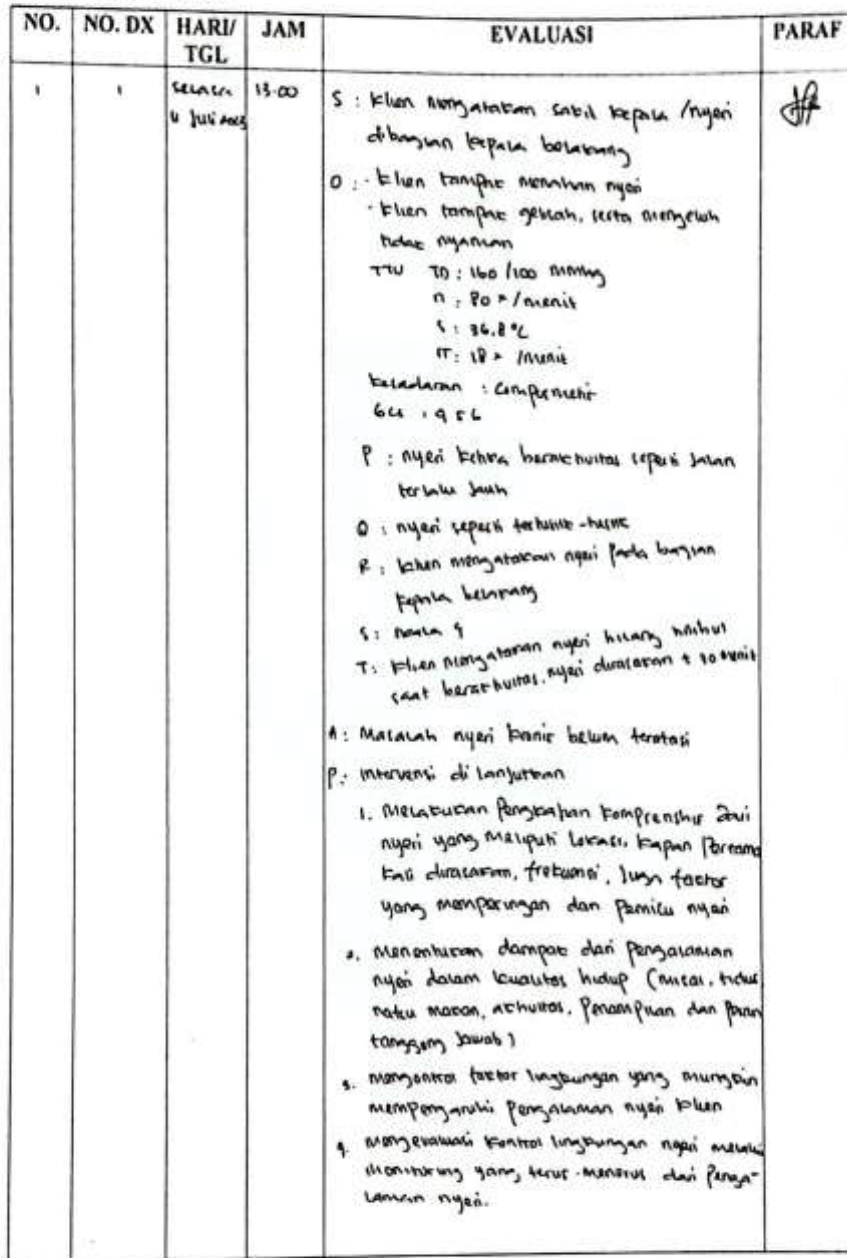 NO. NO. DX HARI/ TGL JAM EVALUASI PARAF
1 1 Selasa 4 Juli 2023 13.00
S : Klien mengatakan sakit kepala / nyeri
dibagian kepala belakang
O : - Klien tampak menahan nyeri
- Klien tampak gelisah, serta mengeluh
tidak nyaman
TTV TD : 160 /100 mmHg
n : 80 x /menit
S : 36.8 °C
18 x /menit
Kesadaran :
P : nyeri ketika berakhvitas seperti jalan
terlalu jauh
Q : nyeri seperti
R : klien mengatakan nyeri pada bagian
kepala belakang
S :
T : Klien mengatakan nyeri hilang
saat nyeri dirasakan ± 10 menit
A : Masalah nyeri belum teratasi
P : Intervensi di lanjutkan
1. Melakukan Pengkajian dari
nyeri yang meliputi lokasi, kapan
kali dirasakan, frekuensi, juga factor
yang memperingan dan pemicu nyeri
2. menentukan dampak dari pengalaman
nyeri dalam kualitas hidup (misal, tidur,
makan, dan
tanggung jawab)
3. mengontrol faktor lingkungan yang mungkin
mempengaruhi pengalaman nyeri klien
4. mengevaluasi kontrol lingkungan nyeri melalui
monitoring yang, terus - menerus dari Penga-
laman nyeri.